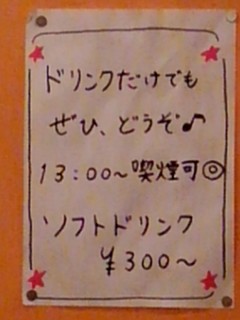 ドリンクだけでも
ぜひ、どうぞ♪
13:00〜喫煙可◎
ソフトドリンク
¥300〜